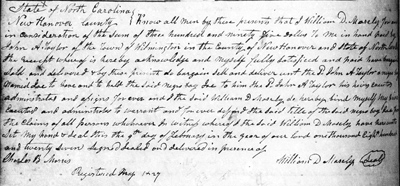 State of North Carolina
New Hanover County } Know all men by these presents that I William D. Mosely for and
in consideration of the sum of three hundred and ninety five dollars to me in hand paid by
John A Taylor of the Town of Wilmington in the County of New Hanover and State of North
the receipt whereof is hereby acknowledge and myself fully satisfied and paid have bargained
sold and delivered & by these presents do bargain sell and deliver unto the Sd. John A Taylor a negro boy
named to have and to hold the said negro boy to him the Sd John A Taylor his heirs executors
administrators and assigns forever and I the said William D Mosely do hereby bind myself my heirs
executors and administrators to warrant and forever defend the said title of the said negro boy from
the Claims of all persons whatsoever In witness whereof I the said William D Mosely have hereunto
Set my hand & seal this the 9th day of February in the year of our Lord one thousand Eight hundred
and twenty seven Signed Sealed and delivered in presence of
Charles B Morris William D Mosely (Seal)
Registered May 1827